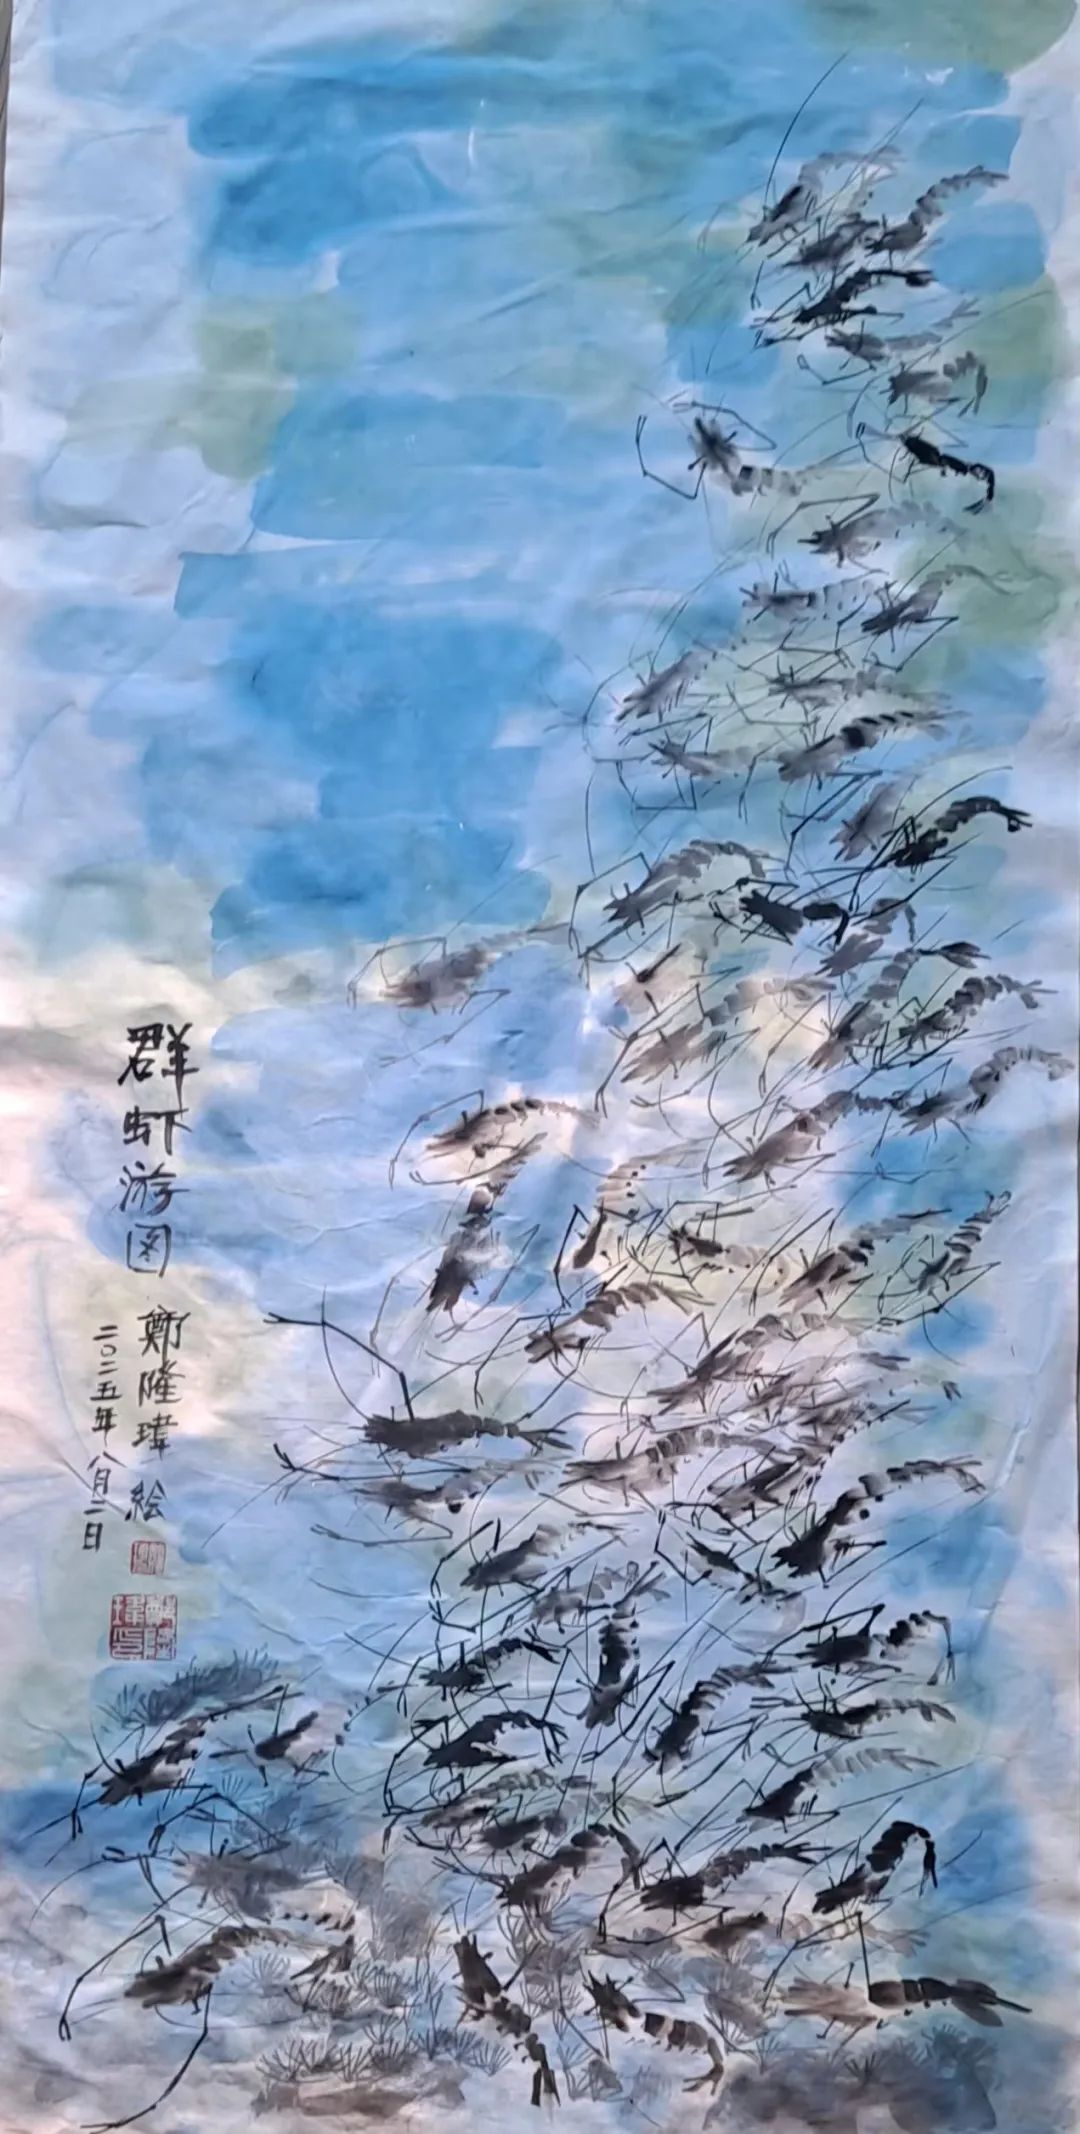 群虾游图
鄭隆瑋绘
二〇二五年八月二日